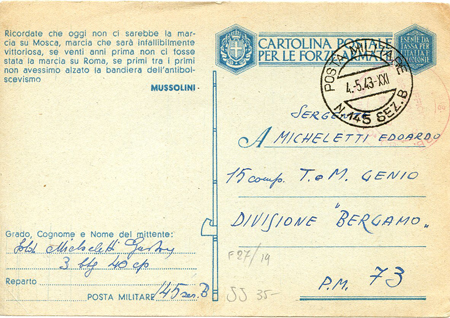 Ricordate che oggi non ci sarebbe la mar-
cia su Mosca, marcia che sarà infallibilmente
vittoriosa, se venti anni prima non ci fosse
stata la marcia su Roma, se primi tra i primi
non avessimo alzato la bandiera dell'antibol-
scevismo
MUSSOLINI
CARTOLINA POSTALE
PER LE FORZE ARMATE
ESENTE DA
TASSA PER
POSTA MILITARE
4.-5.43-XXI
N.145 SEZ.B
Sergente
A MICHELETTI EDOARDO
15 comp. T.e M. GENIO
DIVISIONE "BERGAMO"
P.M. 73
Grado, Cognome e Nome del mittente:
Micheletti
3 40 cp
Reparto
POSTA MILITARE 145 sez. B
F27/19
SS 35-